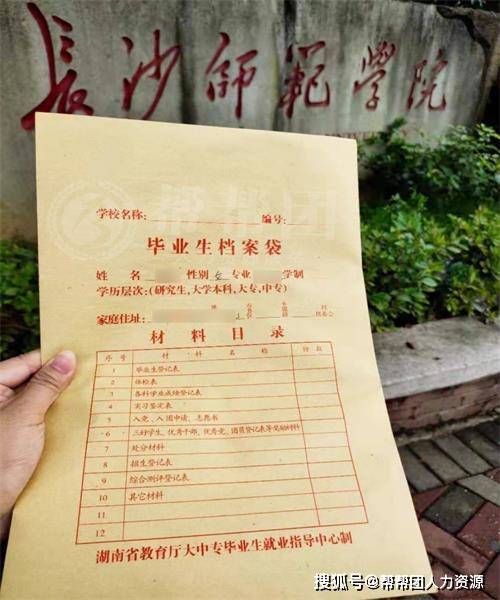 長沙師範學院
帮帮团
学校名称: 编号:
毕业生档案袋
姓 名 性别 女 专业 学制
学历层次:(研究生,大学本科,大专,中专)
家庭住址:
材料目录
序号 材料名称 份数
1 毕业生登记表
2 体检表
3 各科学业成绩登记表
4 实习鉴定表
5 入党、入团申请、志愿书
6 三好学生、优秀干部、优秀党、团员登记表等奖励材料
7 处分材料
8 招生登记表
9 综合测评登记表
10 其它材料
11
12
湖南省教育厅大中专毕业生就业指导中心制
搜狐号@帮帮团人力资源